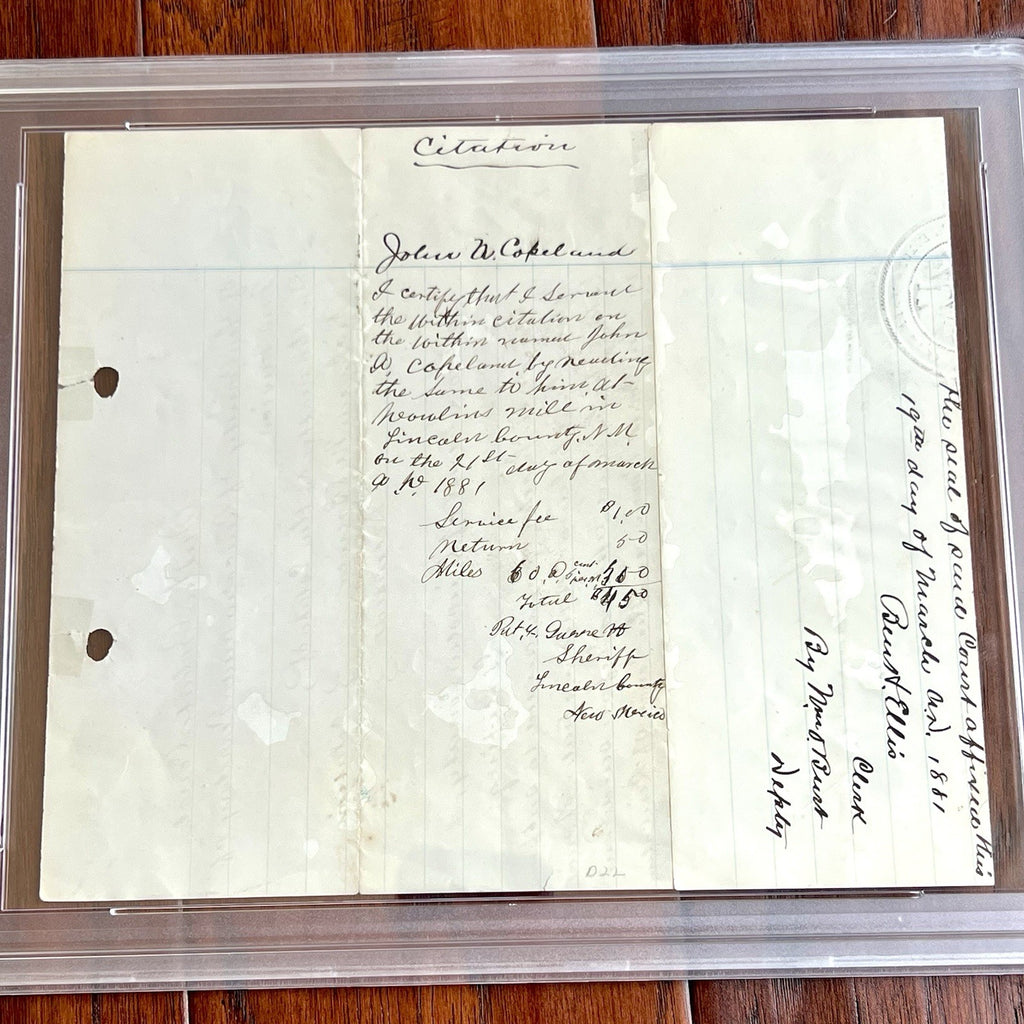 Citation
John N. Copeland
I certify that I served
the within citation on
the within named John
N. Copeland by reading
the same to him at
mill in
Lincoln County, N.M.
on the 21st day of march
A D 1881
Service fee $1.00
Return 50
Miles 60
Total $4 50
Pat. F. Garrett
Sheriff
Lincoln County
New Mexico
D22
the seal of said Court affixed this
19th day of March, A.D. 1881
Ben H. Ellis
Clerk
By Burt
Deputy